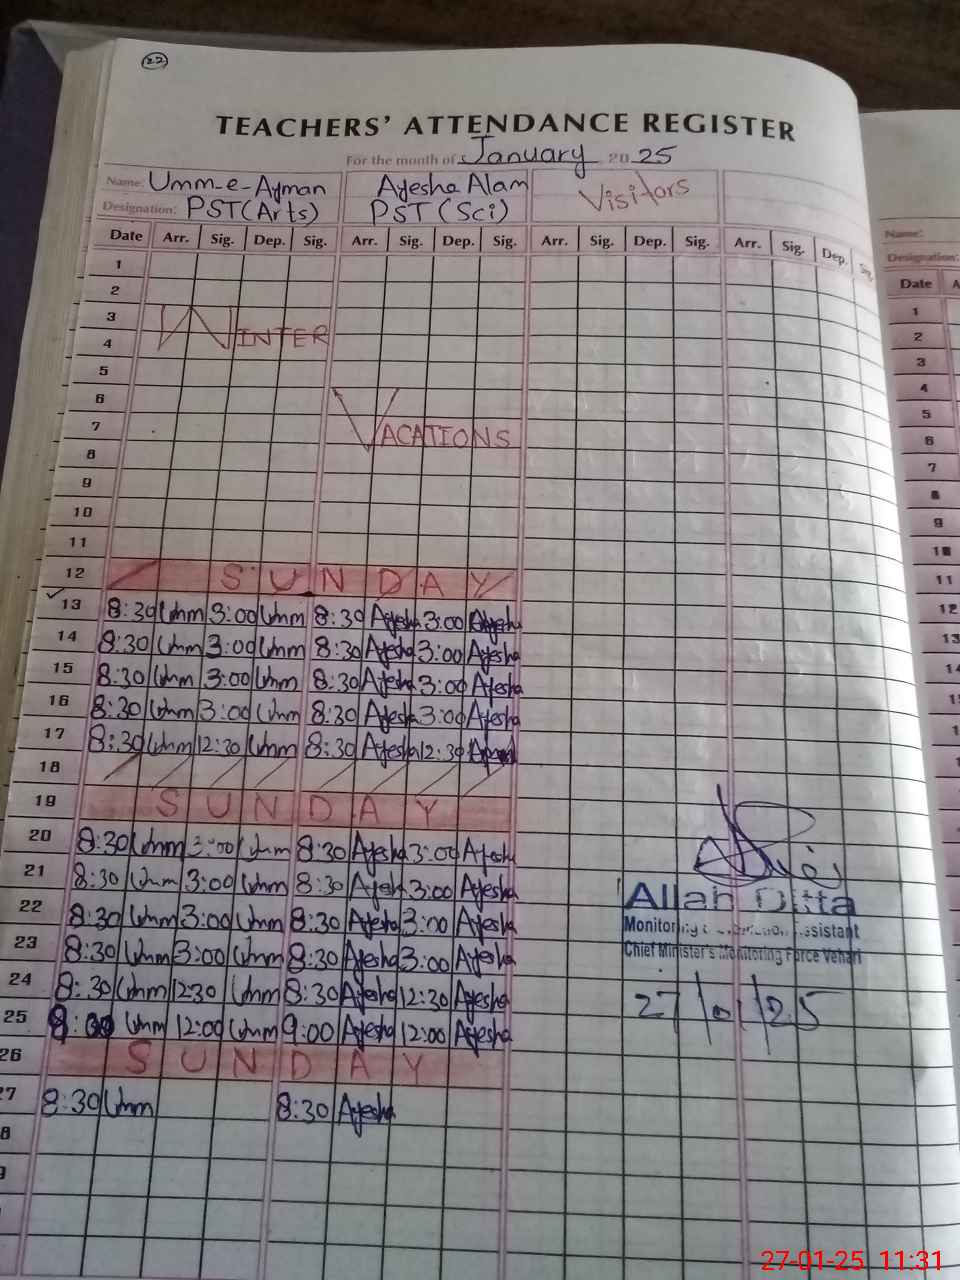 22
TEACHERS' ATTENDANCE REGISTER
For the month of January 2025
Name: Umm-e-Ayman Ayesha Alam Visitors
Designation: PST(Arts) PST(Sci)
Date Arr. Sig. Dep. Sig. Arr. Sig. Dep. Sig. Arr. Sig. Dep. Sig. Arr. Sig. Dep. Sig.
1
2
3 WINTER
4
5
6
7 VACATIONS
8
9
10
11
12 SUNDAY
13 8:30 Umm 3:00 Umm 8:30 Ayesha 3:00 Ayesha
14 8:30 Umm 3:00 Umm 8:30 Ayesha 3:00 Ayesha
15 8:30 Umm 3:00 Umm 8:30 Ayesha 3:00 Ayesha
16 8:30 Umm 3:00 Umm 8:30 Ayesha 3:00 Ayesha
17 8:30 Umm 12:30 Umm 8:30 Ayesha 12:30
18
19 SUNDAY
20 8:30 Umm 3:00 Umm 8:30 Ayesha 3:00 Ayesha
21 8:30 Umm 3:00 Umm 8:30 Ayesha 3:00 Ayesha
22 8:30 Umm 3:00 Umm 8:30 Ayesha 3:00 Ayesha
23 8:30 Umm 3:00 Umm 8:30 Ayesha 3:00 Ayesha
24 8:30 Umm 1230 Umm 8:30 Ayesha 12:30 Ayesha
25 Umm 12:00 Umm 9:00 Ayesha 12:00 Ayesha
26 SUNDAY
27 8:30 Umm 8:30 Ayesha
8
9
Allah Ditta
Monitoring Assistant
Chief Minister's Monitoring Force Vehari
27/01/25
Name:
Designation:
Date A
1
2
3
4
5
6
7
8
9
10
11
12
13
14
27-01-25 11:31